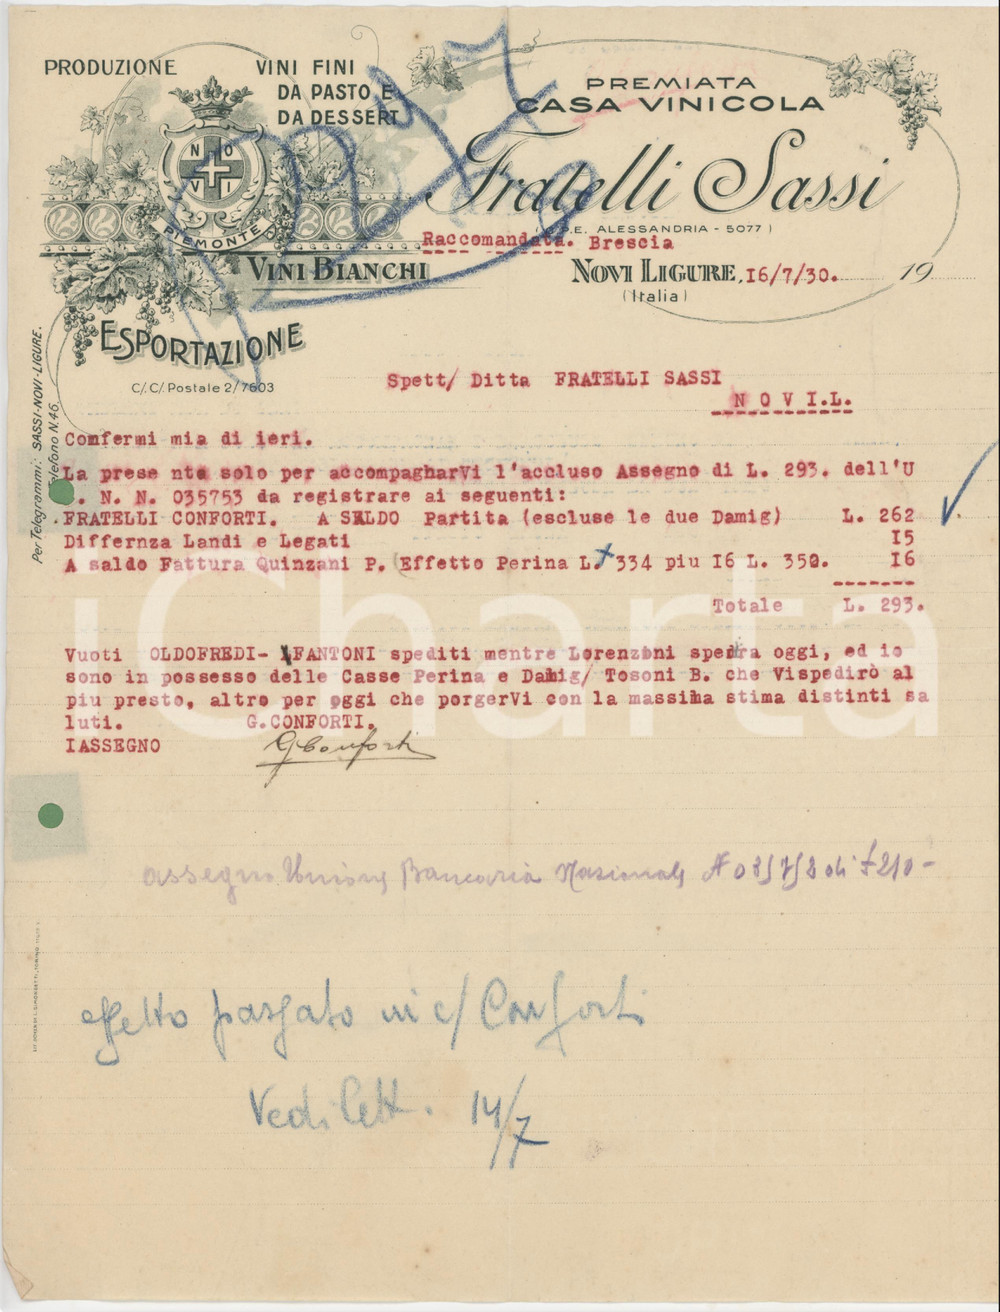 PRODUZIONE
VINI FINI
DA PASTO E
DA DESSERT
NOVI
PIEMONTE
VINI BIANCHI
ESPORTAZIONE
C/. C/. Postale 2/7603
Per Telegrammi: SASSI-NOVI-LIGURE.
Telefono N. 46.
PREMIATA
CASA VINICOLA
Fratelli Sassi
(C.P.E. ALESSANDRIA - 5077)
Raccomandata. Brescia
NOVI LIGURE, 16/7/30. 19
(Italia)
Spett/ Ditta FRATELLI SASSI
N O V I.L.
Confermi mia di ieri.
La prese nte solo per accompagharVi l'accluso Assegno di L. 293. dell'U
. N. N. 035753 da registrare ai seguenti:
FRATELLI CONFORTI. A SALDO Partita (escluse le due Damig) L. 262
Differnza Landi e Legati I5
A saldo Fattura Quinzani P. Effetto Perina L. 334 piu I6 L. 350. I6
Totale L. 293.
Vuoti OLDOFREDI- FANTONI spediti mentre Lorenzoni spedra oggi, ed io
sono in possesso delle Casse Perina e Damig/ Tosoni B. che Vispedirò al
piu presto, altro per oggi che porgerVi con la massima stima distinti sa
luti. G.CONFORTI.
IASSEGNO
GConforti
assegno Unione Bancaria Nazionale
effetto passato in c/ Conforti
Vedi lett. 14/7
iCharta